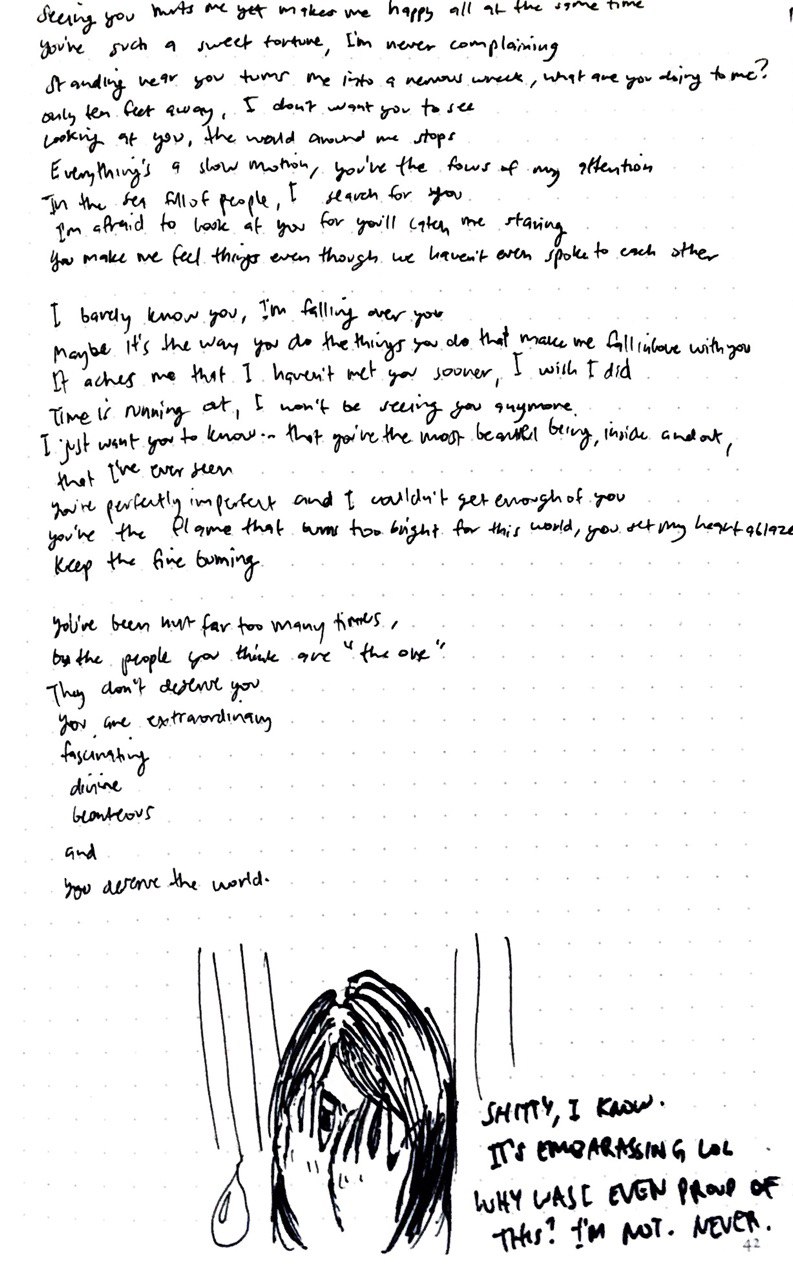 Seeing you hurts me yet makes me happy all at the same time
You're such a sweet torture, I'm never complaining
Standing near you turns me into a nervous wreck, what are you doing to me?
only ten feet away, I don't want you to see
Looking at you, the world around me stops
Everything's a slow motion, you're the focus of my attention
In the sea full of people, I search for you
I'm afraid to look at you for you'll catch me staring
You make me feel things even though we haven't even spoke to each other
I barely know you, I'm falling over you
Maybe it's the way you do the things you do that make me fall in love with you
It aches me that I haven't met you sooner, I wish I did
Time is running out, I won't be seeing you anymore
I just want you to know... that you're the most beautiful being, inside and out,
that I've ever seen
You're perfectly imperfect and I couldn't get enough of you
you're the flame that burns too bright for this world, you set my heart ablaze
Keep the fire burning
You've been hurt far too many times,
by the people you think are "the one"
They don't deserve you
You are extraordinary
fascinating
divine
beauteous
and
You deserve the world.
SHITTY, I KNOW.
IT'S EMBARASSING LOL
WHY WAS I EVEN PROUD OF
THIS? I'M NOT. NEVER.
42